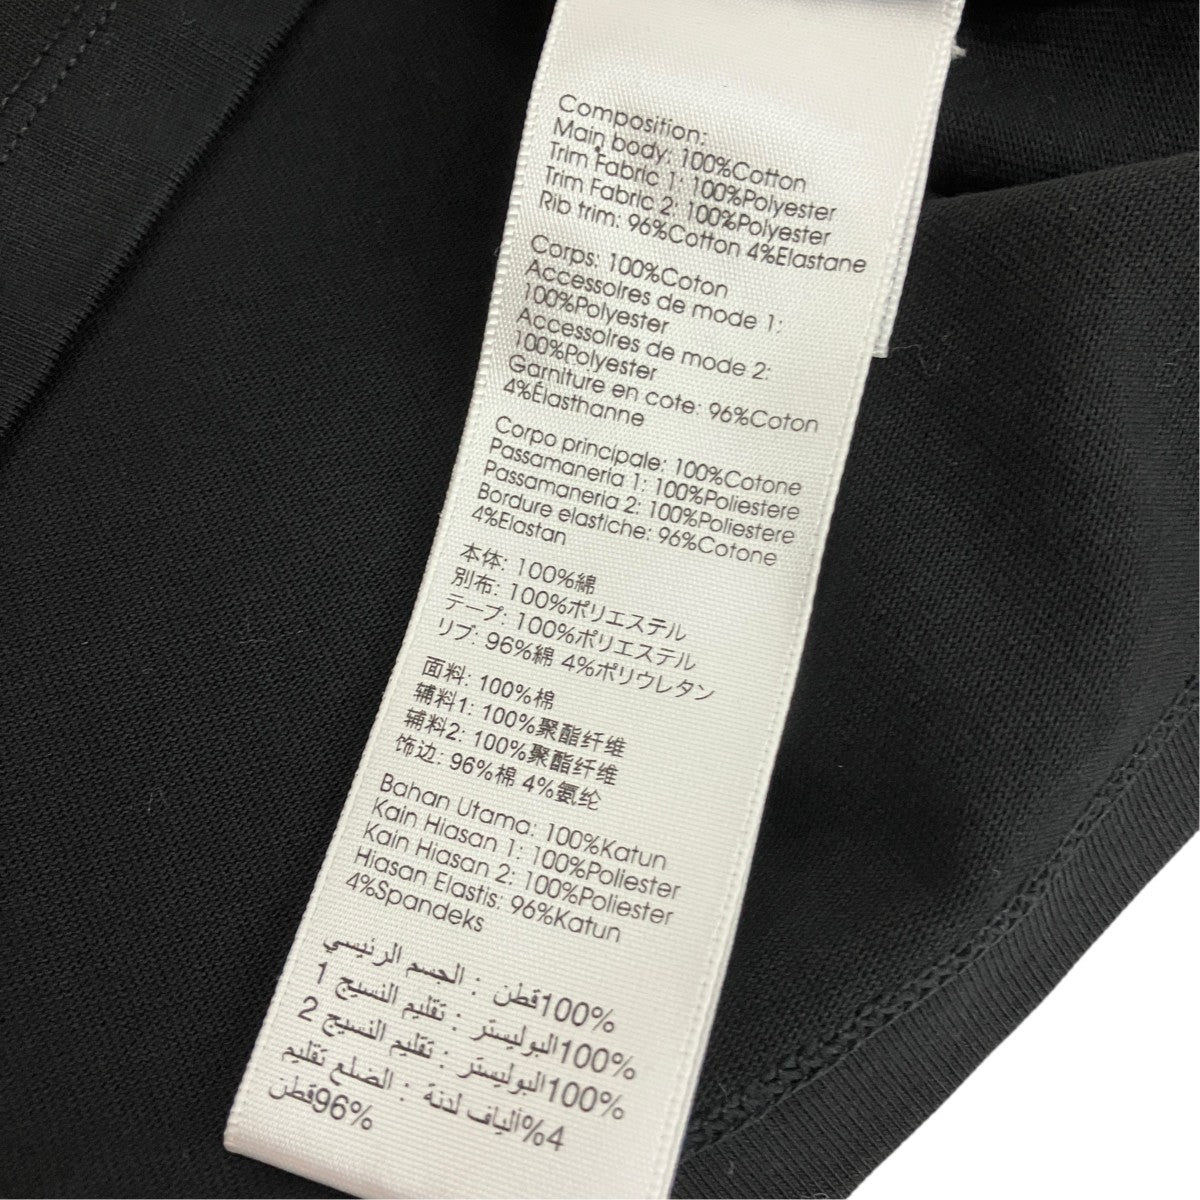 Composition:
Main body: 100%Cotton
Trim Fabric 1: 100%Polyester
Trim Fabric 2: 100%Polyester
Rib trim: 96%Cotton 4%Elastane
Corps: 100%Coton
Accessoires de mode 1:
100%Polyester
Accessoires de mode 2:
100%Polyester
Garniture en cote: 96%Coton
4%Élasthanne
Corpo principale: 100%Cotone
Passamaneria 1: 100%Poliestere
Passamaneria 2: 100%Poliestere
Bordure elastiche: 96%Cotone
4%Elastan
本体: 100%綿
別布: 100%ポリエステル
テープ: 100%ポリエステル
リブ: 96%綿 4%ポリウレタン
面料: 100%棉
辅料1: 100%聚酯纤维
辅料2: 100%聚酯纤维
饰边: 96%棉 4%氨纶
Bahan Utama: 100%Katun
Kain Hiasan 1: 100%Poliester
Kain Hiasan 2: 100%Poliester
Hiasan Elastis: 96%Katun
4%Spandeks
100%قطن : الجسم الرئيسي
100%البوليستر : تقليم النسيج 1
100%البوليستر : تقليم النسيج 2
4%ألياف لدنة : الضلع تقليم
96%قطن